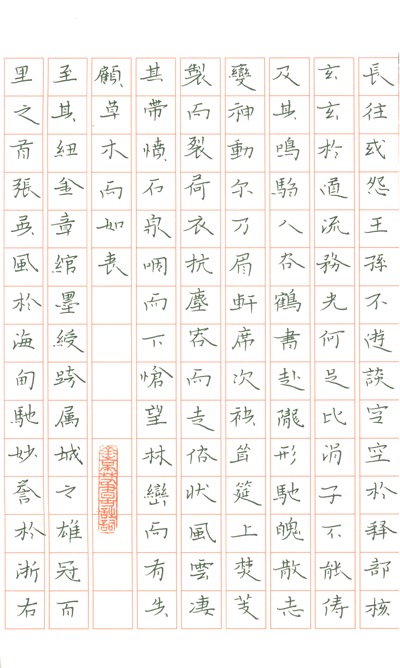 長往或怨王孫不遊談空空於釋部核
玄玄於道流務光何足比涓子不能儔
及其鳴騶入谷鶴書赴隴形馳魄散志
變神動尔乃眉軒席次袂耸筵上焚芰
製而裂荷衣抗塵容而走俗狀風雲凄
其帶憤石泉咽而下愴望林巒而有失
顧草木而如喪
至其紐金章綰墨綬跨属城之雄冠百
里之首張英風於海甸馳妙誉於浙右